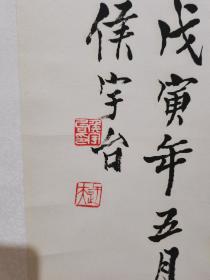 戊寅年五月
侯宇台